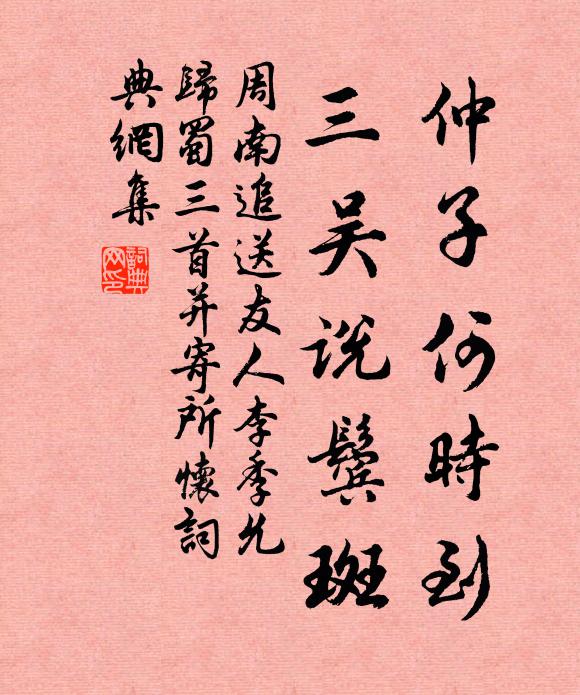 仲子何時到
三吴説鬢斑
周南追送友人李季允
歸蜀三首并寄所懷詞
典網集
詞典网印